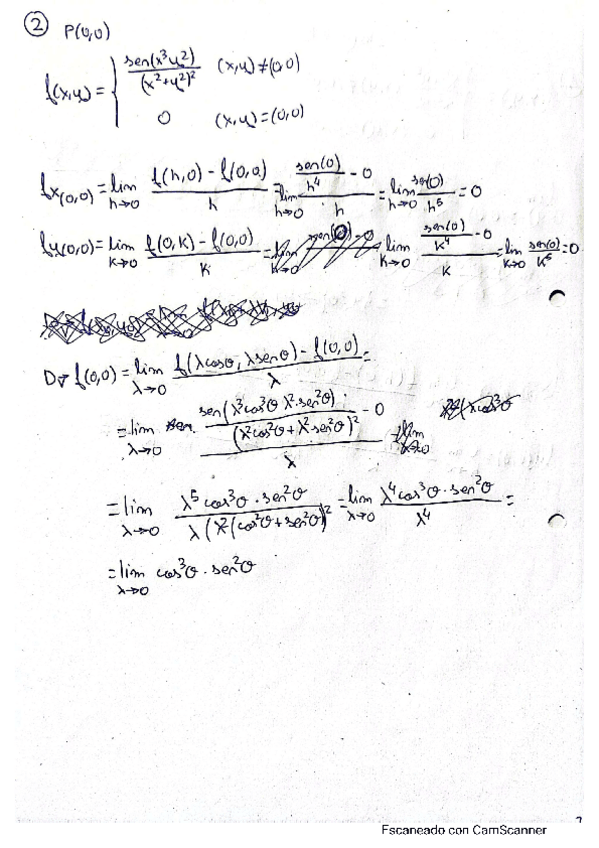 ② P(0,0)
f(x,y) = { sen(x³y²)/(x²+y²)² (x,y)≠(0,0)
0 (x,y)=(0,0)
fx(0,0) = lim h→0 (f(h,0) - f(0,0))/h = lim h→0 (sen(0)/h⁴ - 0)/h = lim h→0 sen(0)/h⁵ = 0
fy(0,0) = lim k→0 (f(0,k) - f(0,0))/k = lim k→0 (sen(0)/k⁴ - 0)/k = lim k→0 sen(0)/k⁵ = 0
D⃗v f(0,0) = lim λ→0 (f(λcosθ, λsenθ) - f(0,0))/λ =
= lim λ→0 (sen(λ³cos³θ λ²·sen²θ)/(λ²cos²θ + λ²·sen²θ)² - 0)/λ
= lim λ→0 λ⁵cos³θ·sen²θ/λ(λ²(cos²θ + sen²θ))² = lim λ→0 λ⁴cos³θ·sen²θ/λ⁴ =
= lim λ→0 cos³θ·sen²θ
Escaneado con CamScanner